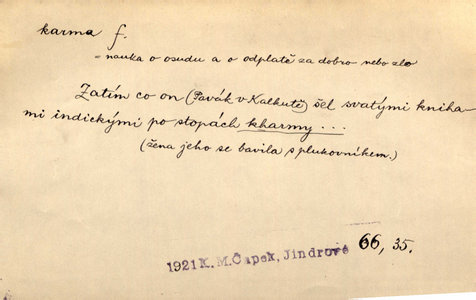 karma f.
= nauka o osudu a o odplatě za dobro nebo zlo
Zatím co on (Pavák v Kalkutě) šel svatými kniha-
mi indickými po stopách kharmy...
(žena jeho se bavila s plukovníkem.)
1921 K. M. Čapek, Jindrové 66, 35.